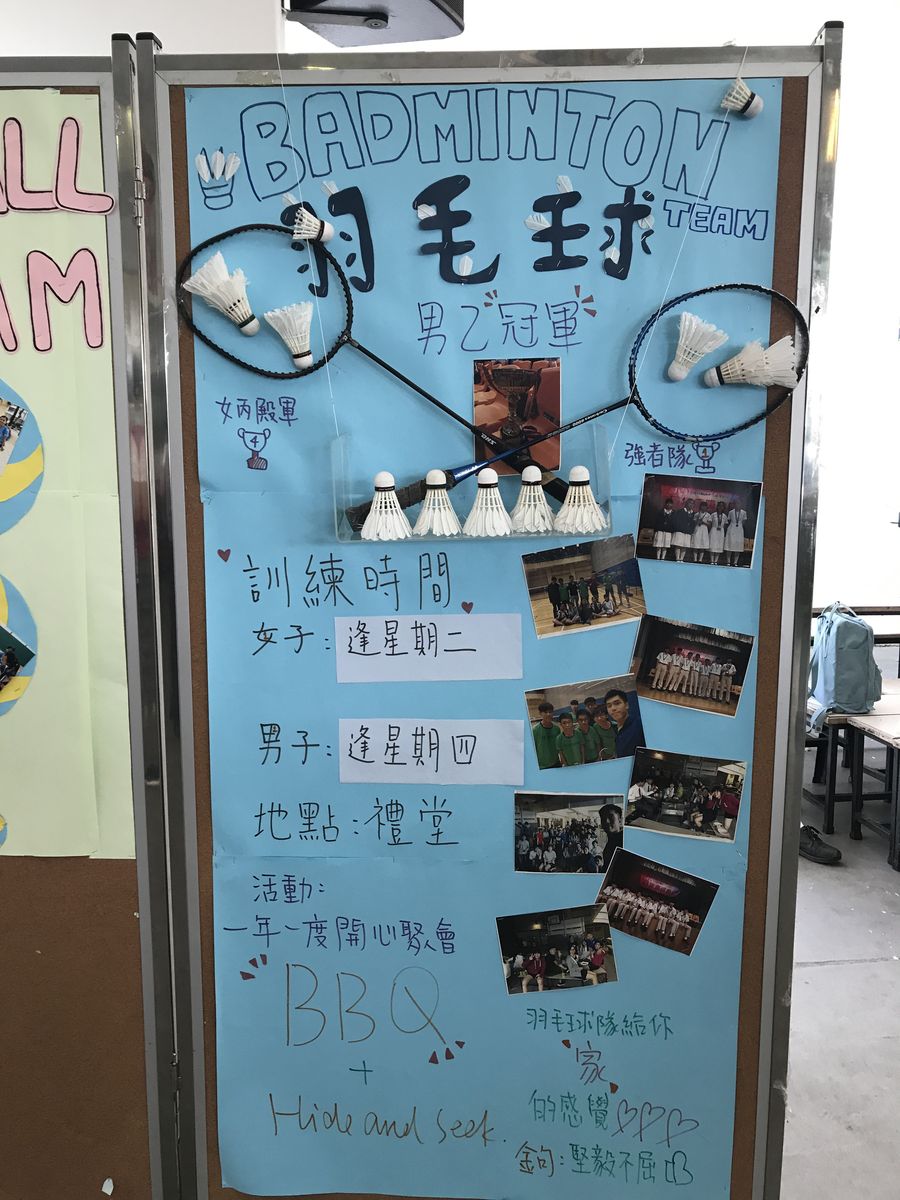 ALL
AM
BADMINTON
羽毛球
TEAM
男乙冠軍
女丙殿軍
4
強者隊
4
訓練時間
女子：逢星期二
男子：逢星期四
地點：禮堂
活動：
一年一度開心聚會
BBQ
+
Hide and Seek.
羽毛球隊給你
"家"
的感覺
金句：堅毅不屈